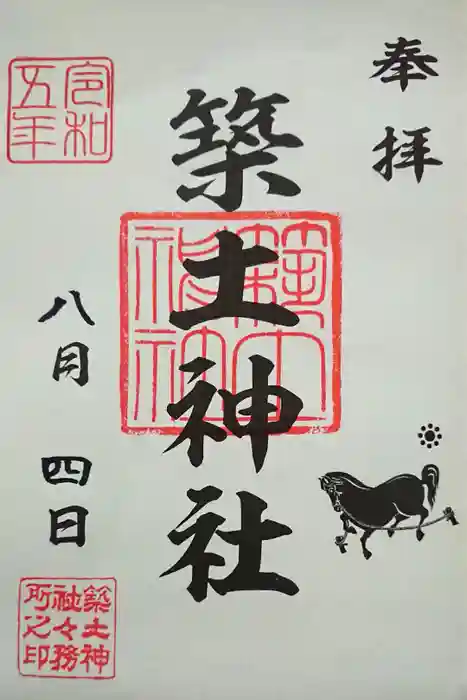 奉拝
築土神社
築土神社
令和
五年
八月四日
築土神
社々務
所之印